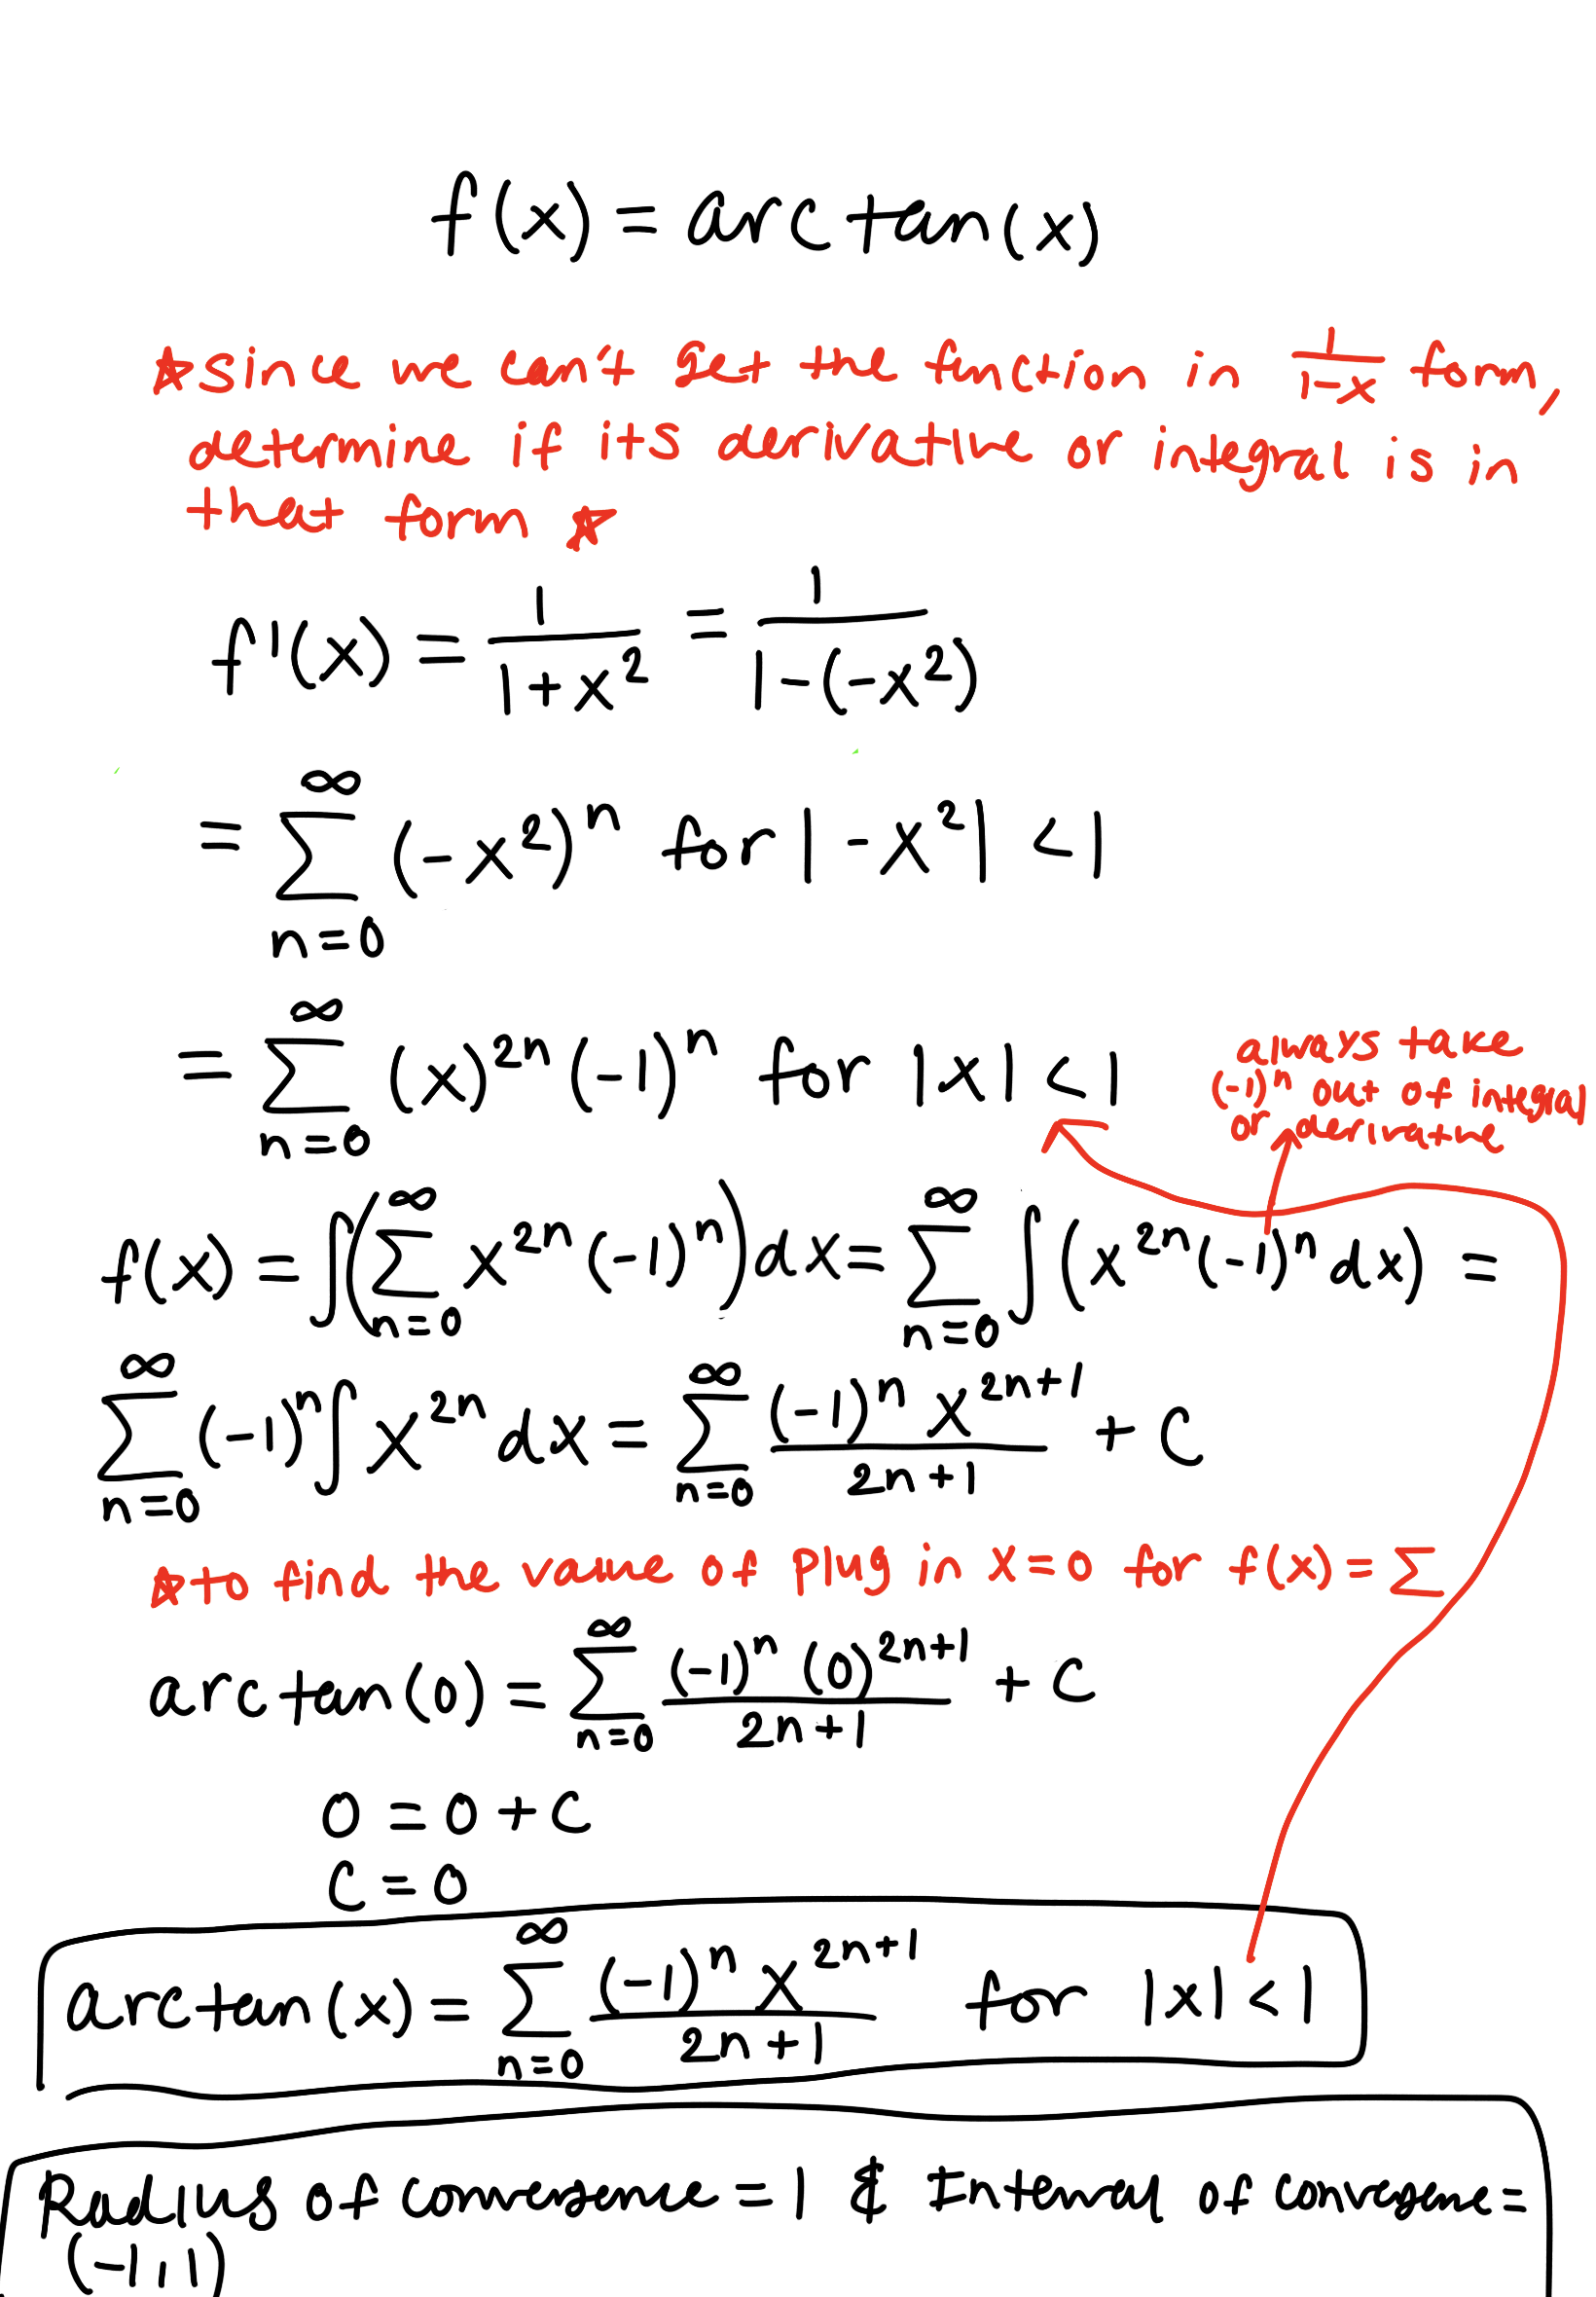 f(x) = arctan(x)
☆since we can't get the function in 1/(1-x) form,
determine if its derivative or integral is in
that form ☆
f'(x) = 1/(1+x²) = 1/(1-(-x²))
= ∑_{n=0}^{∞} (-x²)ⁿ for |-x²| < 1
= ∑_{n=0}^{∞} (x)^{2n} (-1)ⁿ for |x| < 1
always take
(-1)ⁿ out of integral
or derivative
f(x) = ∫(∑_{n=0}^{∞} x^{2n} (-1)ⁿ) dx = ∑_{n=0}^{∞} ∫(x^{2n} (-1)ⁿ dx) =
∑_{n=0}^{∞} (-1)ⁿ ∫ x^{2n} dx = ∑_{n=0}^{∞} (-1)ⁿ x^{2n+1}/(2n+1) + C
☆to find the value of plug in x=0 for f(x) = ∑
arctan(0) = ∑_{n=0}^{∞} (-1)ⁿ (0)^{2n+1}/(2n+1) + C
0 = 0 + C
C = 0
arctan(x) = ∑_{n=0}^{∞} (-1)ⁿ x^{2n+1}/(2n+1) for |x| < 1
Radius of convergence = 1 & Interval of convergene =
(-1,1)